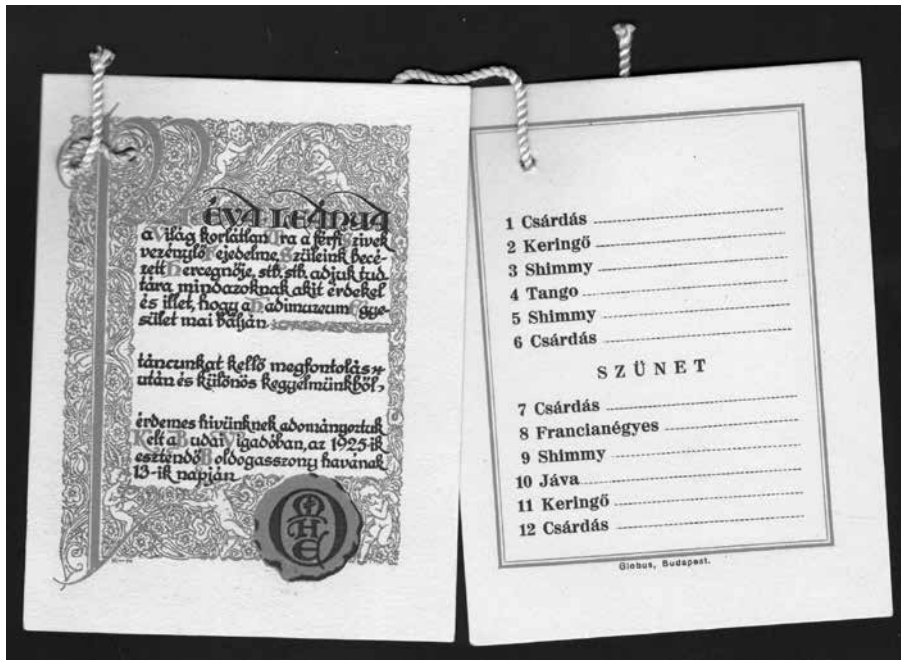 MI
ÉVA LEÁNYA
a Világ korlátlan Ura a férfi Szivek
vezénylő Fejedelme, Szüleink becé-
zett Hercegnője, stb. stb. adjuk tud-
tára mindazoknak akit érdekel
és illet, hogy a Hadimuzeum Egye-
sület mai bálján
táncunkat kellő megfontolás
után és különös kegyelmünkből,
érdemes hivünknek adományoztuk
Kelt a Budai Vigadóban, az 1925-ik
esztendő Boldogasszony havának
13-ik napján
OMHE
1 Csárdás
2 Keringő
3 Shimmy
4 Tango
5 Shimmy
6 Csárdás
SZÜNET
7 Csárdás
8 Francianégyes
9 Shimmy
10 Jáva
11 Keringő
12 Csárdás
Globus, Budapest.